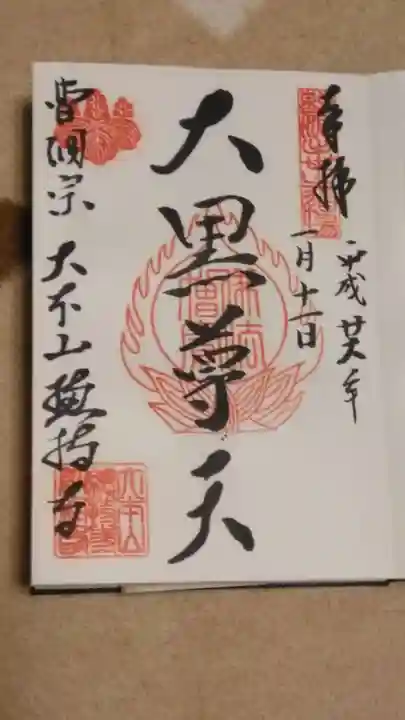 奉拝
平成廿六年
一月十一日
大黒尊天
曹洞宗 大本山 總持寺